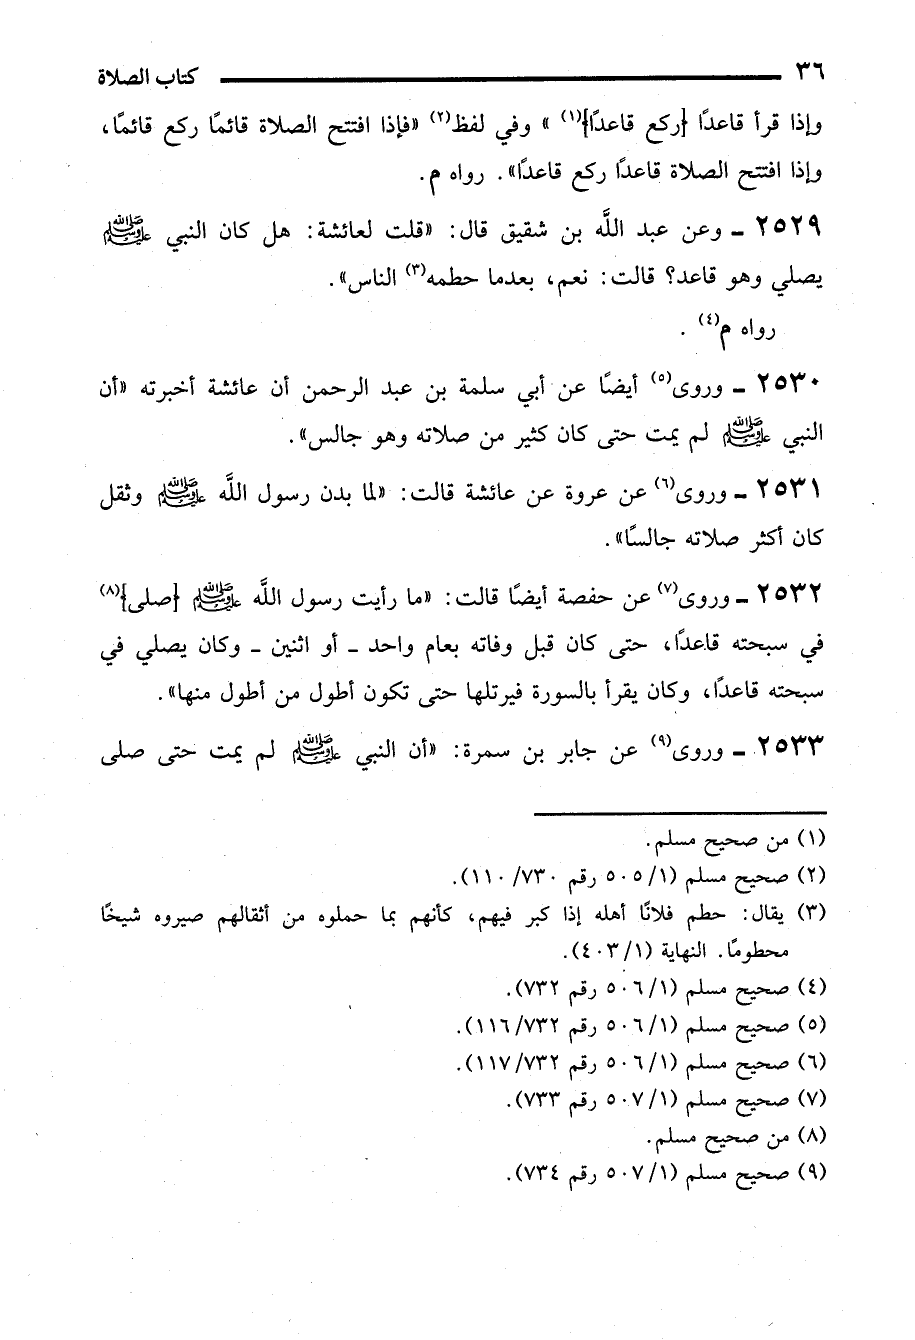 ٣٦ كتاب الصلاة
وإذا قرأ قاعدًا [ركع قاعدًا](١) » وفي لفظ(٢) «فإذا افتتح الصلاة قائمًا ركع قائمًا،
وإذا افتتح الصلاة قاعدًا ركع قاعدًا». رواه م.
٢٥٢٩ ـ وعن عبد اللَّه بن شقيق قال: «قلت لعائشة: هل كان النبي ﷺ
يصلي وهو قاعد؟ قالت: نعم، بعدما حطمه(٣) الناس».
رواه م(٤) .
٢٥٣٠ ـ وروى(٥) أيضًا عن أبي سلمة بن عبد الرحمن أن عائشة أخبرته «أن
النبي ﷺ لم يمت حتى كان كثير من صلاته وهو جالس».
٢٥٣١ ـ وروى(٦) عن عروة عن عائشة قالت: «لما بدن رسول اللَّه ﷺ وثقل
كان أكثر صلاته جالسًا».
٢٥٣٢ ـ وروى(٧) عن حفصة أيضًا قالت: «ما رأيت رسول اللَّه ﷺ [صلى](٨)
في سبحته قاعدًا، حتى كان قبل وفاته بعام واحد ـ أو اثنين ـ وكان يصلي في
سبحته قاعدًا، وكان يقرأ بالسورة فيرتلها حتى تكون أطول من أطول منها».
٢٥٣٣ ـ وروى(٩) عن جابر بن سمرة: «أن النبي ﷺ لم يمت حتى صلى
(١) من صحيح مسلم.
(٢) صحيح مسلم (١/ ٥٠٥ رقم ٧٣٠/ ١١٠).
(٣) يقال: حطم فلانًا أهله إذا كبر فيهم، كأنهم بما حملوه من أثقالهم صيروه شيخًا
محطومًا. النهاية (١/ ٤٠٣).
(٤) صحيح مسلم (١/ ٥٠٦ رقم ٧٣٢).
(٥) صحيح مسلم (١/ ٥٠٦ رقم ٧٣٢/ ١١٦).
(٦) صحيح مسلم (١/ ٥٠٦ رقم ٧٣٢/ ١١٧).
(٧) صحيح مسلم (١/ ٥٠٧ رقم ٧٣٣).
(٨) من صحيح مسلم.
(٩) صحيح مسلم (١/ ٥٠٧ رقم ٧٣٤).